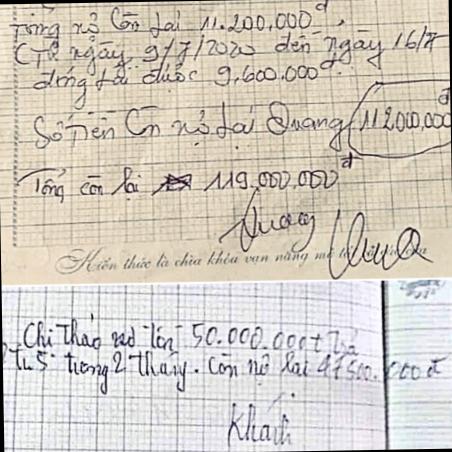 Tổng nợ Còn lại 11.200.000đ
CTừ ngày 9/7/2020 đến ngày 16/7
đóng lãi được 9.600.000đ
Số Tiền Còn nợ lại Quang 112000,000đ
Tổng còn lại 119.000.000đ
Quang
Kiến thức là chìa khóa vạn năng mở
Chị Thảo nợ tôn 50.000.000t Trả
từ 5 trong 2 tháng. Còn nợ lại 47500.000đ
Khách